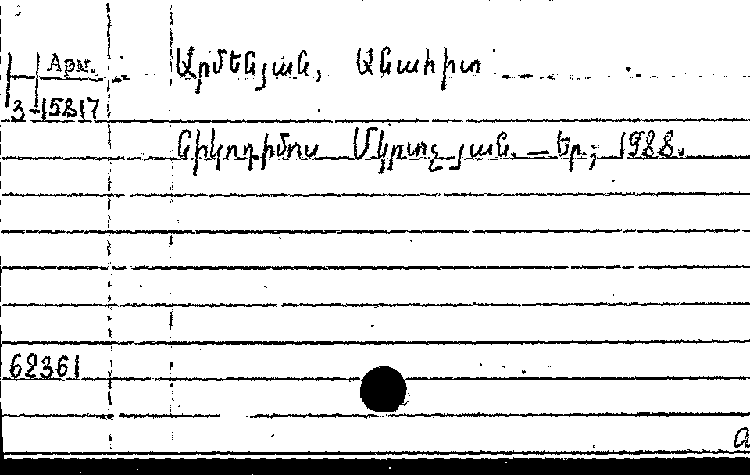 Арм. Արմենյան, Անահիտ
3-15817
Նիկոդիմոս Մկրտչյան. — Եր., 1988.
62361
а